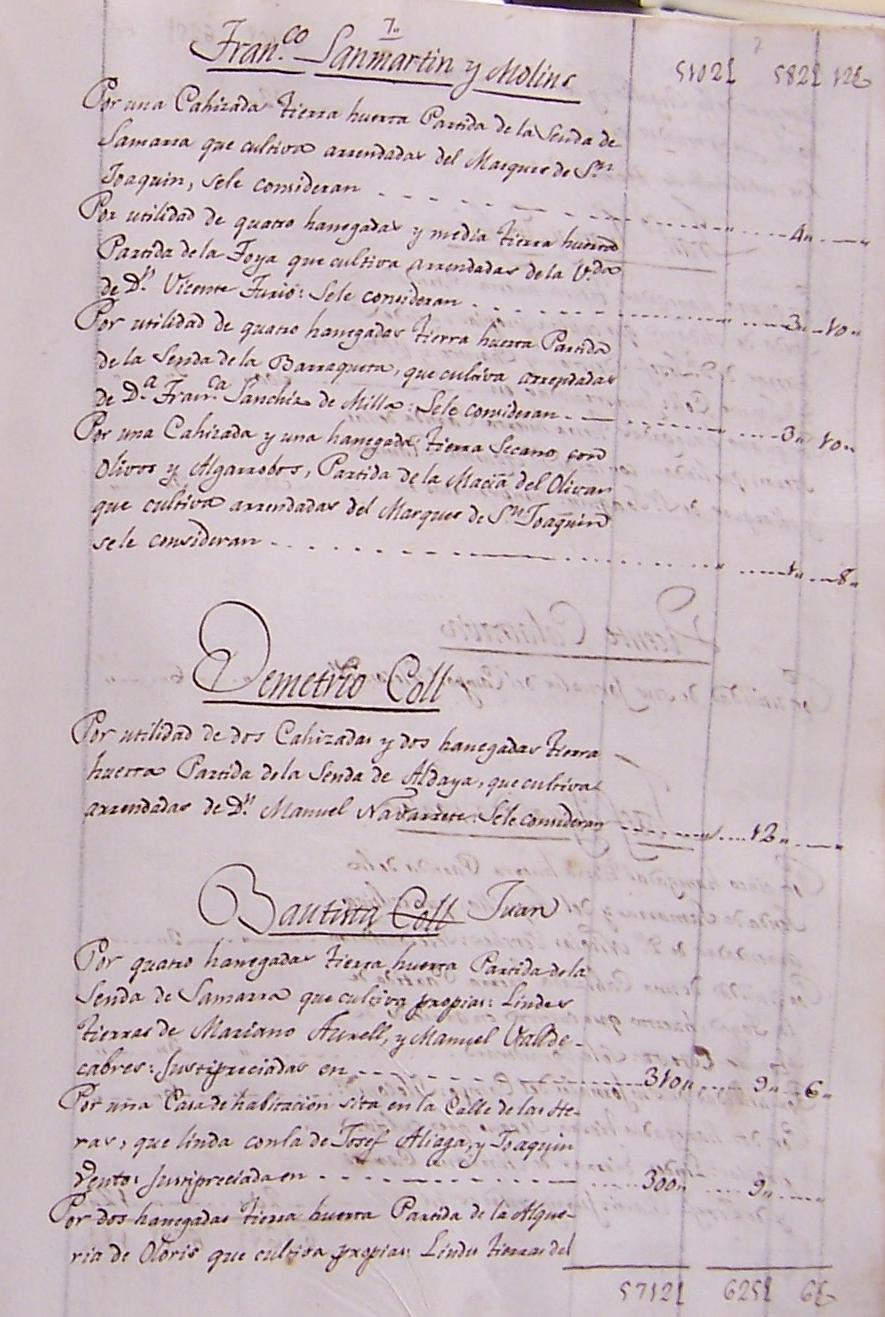 7..
Fran.co Sanmartin y Molins 5102£ 582£ 12s
Por una Cahizada tierra huerta Partida de la Senda de
Samarra que cultiva arrendadas del Marques de S.n
Joaquin, sele consideran - - - - - " - - - 4" - - "
Por utilidad de quatro hanegadas y media tierra huerta
Partida de la Foya que cultiva arrendadas de la V.da
de D.n Vicente Furió: Sele consideran - - - - " - - - 3" - 10"
Por utilidad de quatro hanegadas tierra huerta Partida
de la Senda de la Barraqueta, que cultiva arrendadas
de D.a Fran.ca Sanchiz de Milla: Sele consideran - - - - " - - - 3" 10"
Por una Cahizada y una hanegada tierra Secano, con
Olivos y Algarrobos, Partida de la Macia del Olivar
que cultiva arrendadas del Marques de S.n Joaquin
sele consideran - - - - - " - - - 1" - - 8"
Demetrio Coll
Por utilidad de dos Cahizadas y dos hanegadas tierra
huerta Partida dela Senda de Aldaya, que cultiva
arrendadas de D.n Manuel Navarrete: Sele consideran - - - - " - - - 12" - - "
Bautista Coll Juan
Por quatro hanegadas tierra huerta Partida de la
Senda de Samarra que cultiva propias: Lindes
tierras de Mariano Aurell, y Manuel Vallde-
cabres: Justipreciadas en - - - - - 310" - - - 9" - 6"
Por una Casa de habitacion sita en la Calle de las He-
ras, que linda con la de Josef Aliaga, y Joaquin
Vento: Justipreciada en - - - - - 300" - - - 9" - - "
Por dos hanegadas tierra huerta Partida de la Alque-
ria de Oloris que cultiva propias: Lindes tierras del
5712£ 625£ 6s